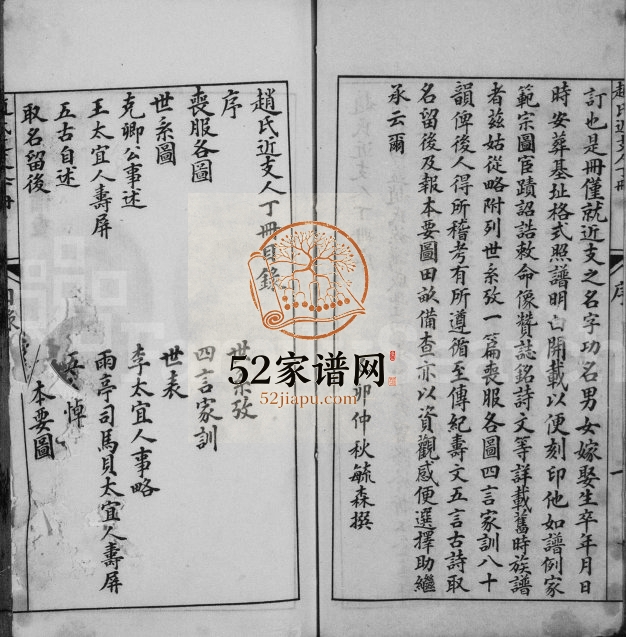 訂也是冊僅就近支之名字功名男女嫁娶生卒年月日
時安葬基址格式照譜明白開載以便刻印他如譜例家
範宗圖宦蹟詔誥敕命像贊誌銘詩文等詳載舊時族譜
者茲姑從略附列世系攷一篇喪服各圖四言家訓八十
韻俾後人得所稽考有所遵循至傳紀壽文五言古詩取
名留後及報本要圖田畝備查亦以資觀感便選擇助繼
承云爾
卯仲秋毓森撰
序
一
趙氏近支人丁冊目錄
序
世系攷
喪服各圖
四言家訓
世系圖
世表
克卿公事述
李太宜人事略
王太宜人壽屏
雨亭司馬貝太宜人壽屏
五古自述
悼
取名留後
本要圖
52家谱网
52jiapu.com